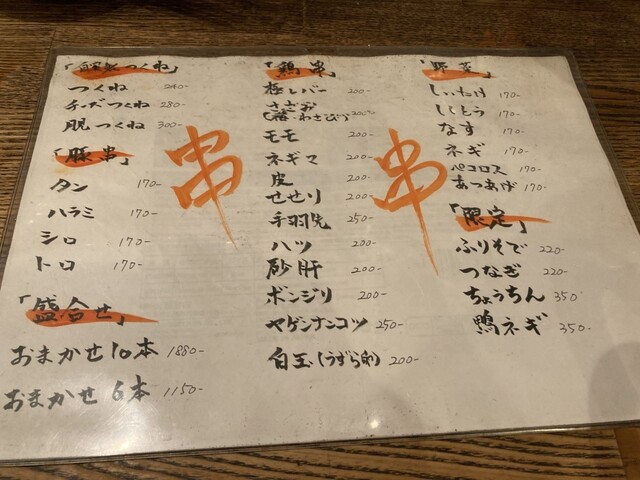 「解禁つくね」
つくね 240-
チーズつくね 280-
月見つくね 300-
「豚串」
タン 170-
ハラミ 170-
シロ 170-
トロ 170-
「盛合せ」
おまかせ10本 1880-
おまかせ6本 1150-
串
「鶏串」
極レバー 200-
ささみ
(梅・わさび) 200-
モモ 200-
ネギマ 200-
皮 200-
せせり 200-
手羽先 250-
ハツ 200-
砂肝 200-
ボンジリ 200-
ヤゲンナンコツ 250-
白玉(うずら卵) 200-
串
「野菜」
しいたけ 170-
ししとう 170-
なす 170-
ネギ 170-
ペコロス 170-
あつあげ 170-
「限定」
ふりそで 220-
つなぎ 220-
ちょうちん 350-
鴨ネギ 350-